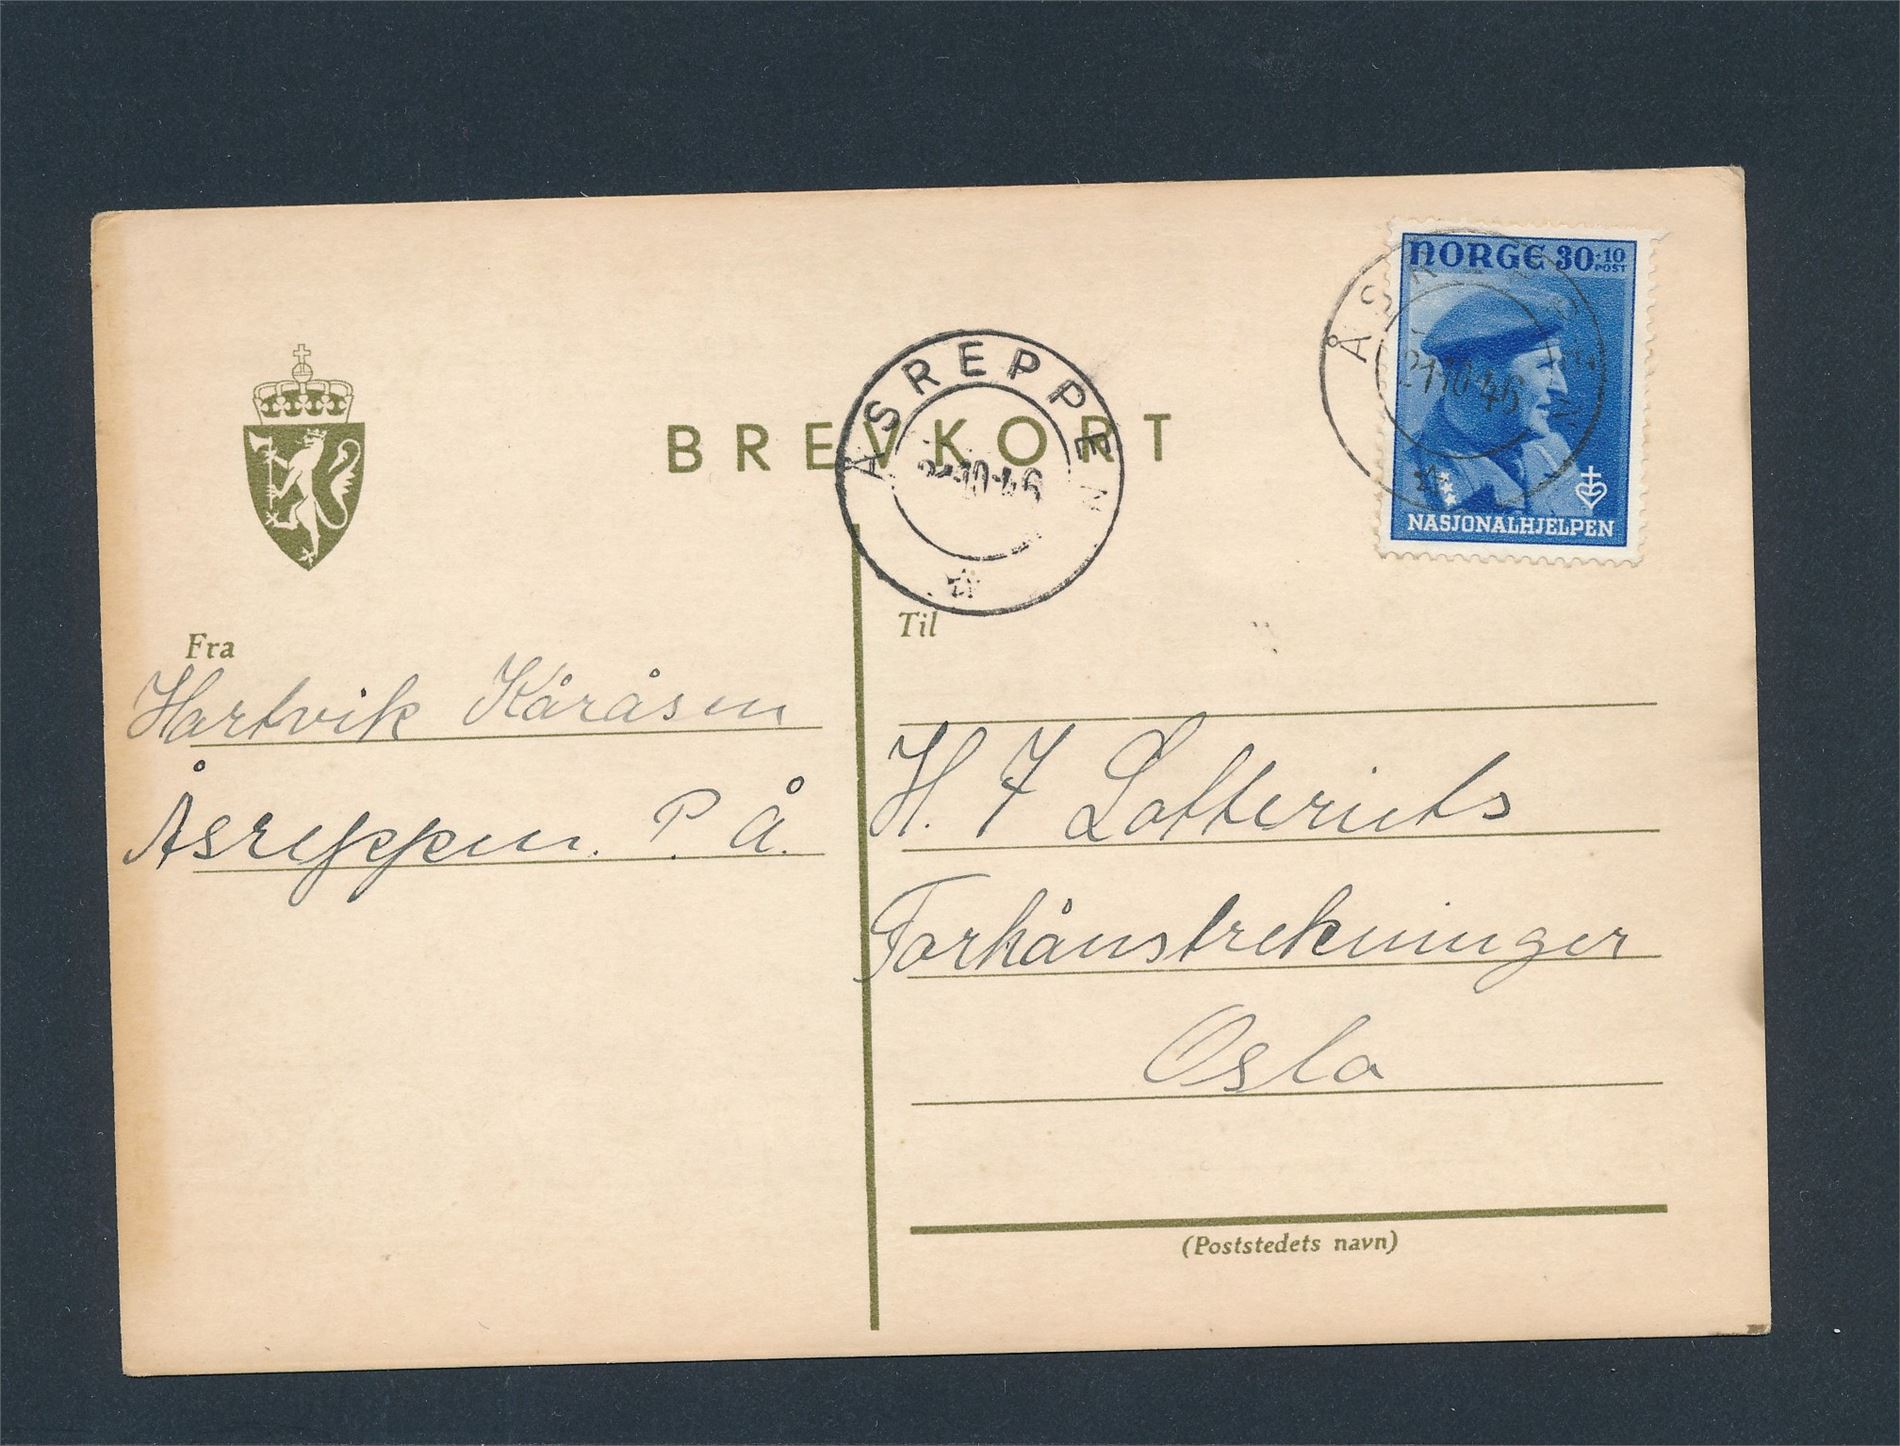 NORGE 30+10
POST
NASJONALHJELPEN
ÅSREPPEN
21·10·46
BREVKORT
ÅSREPPEN
21·10·46
Fra
Hartvik Kåråsen
Åsreppen. P. Å.
Til
H. 7 Lotteriets
Forhånstrekninger
Oslo
(Poststedets navn)